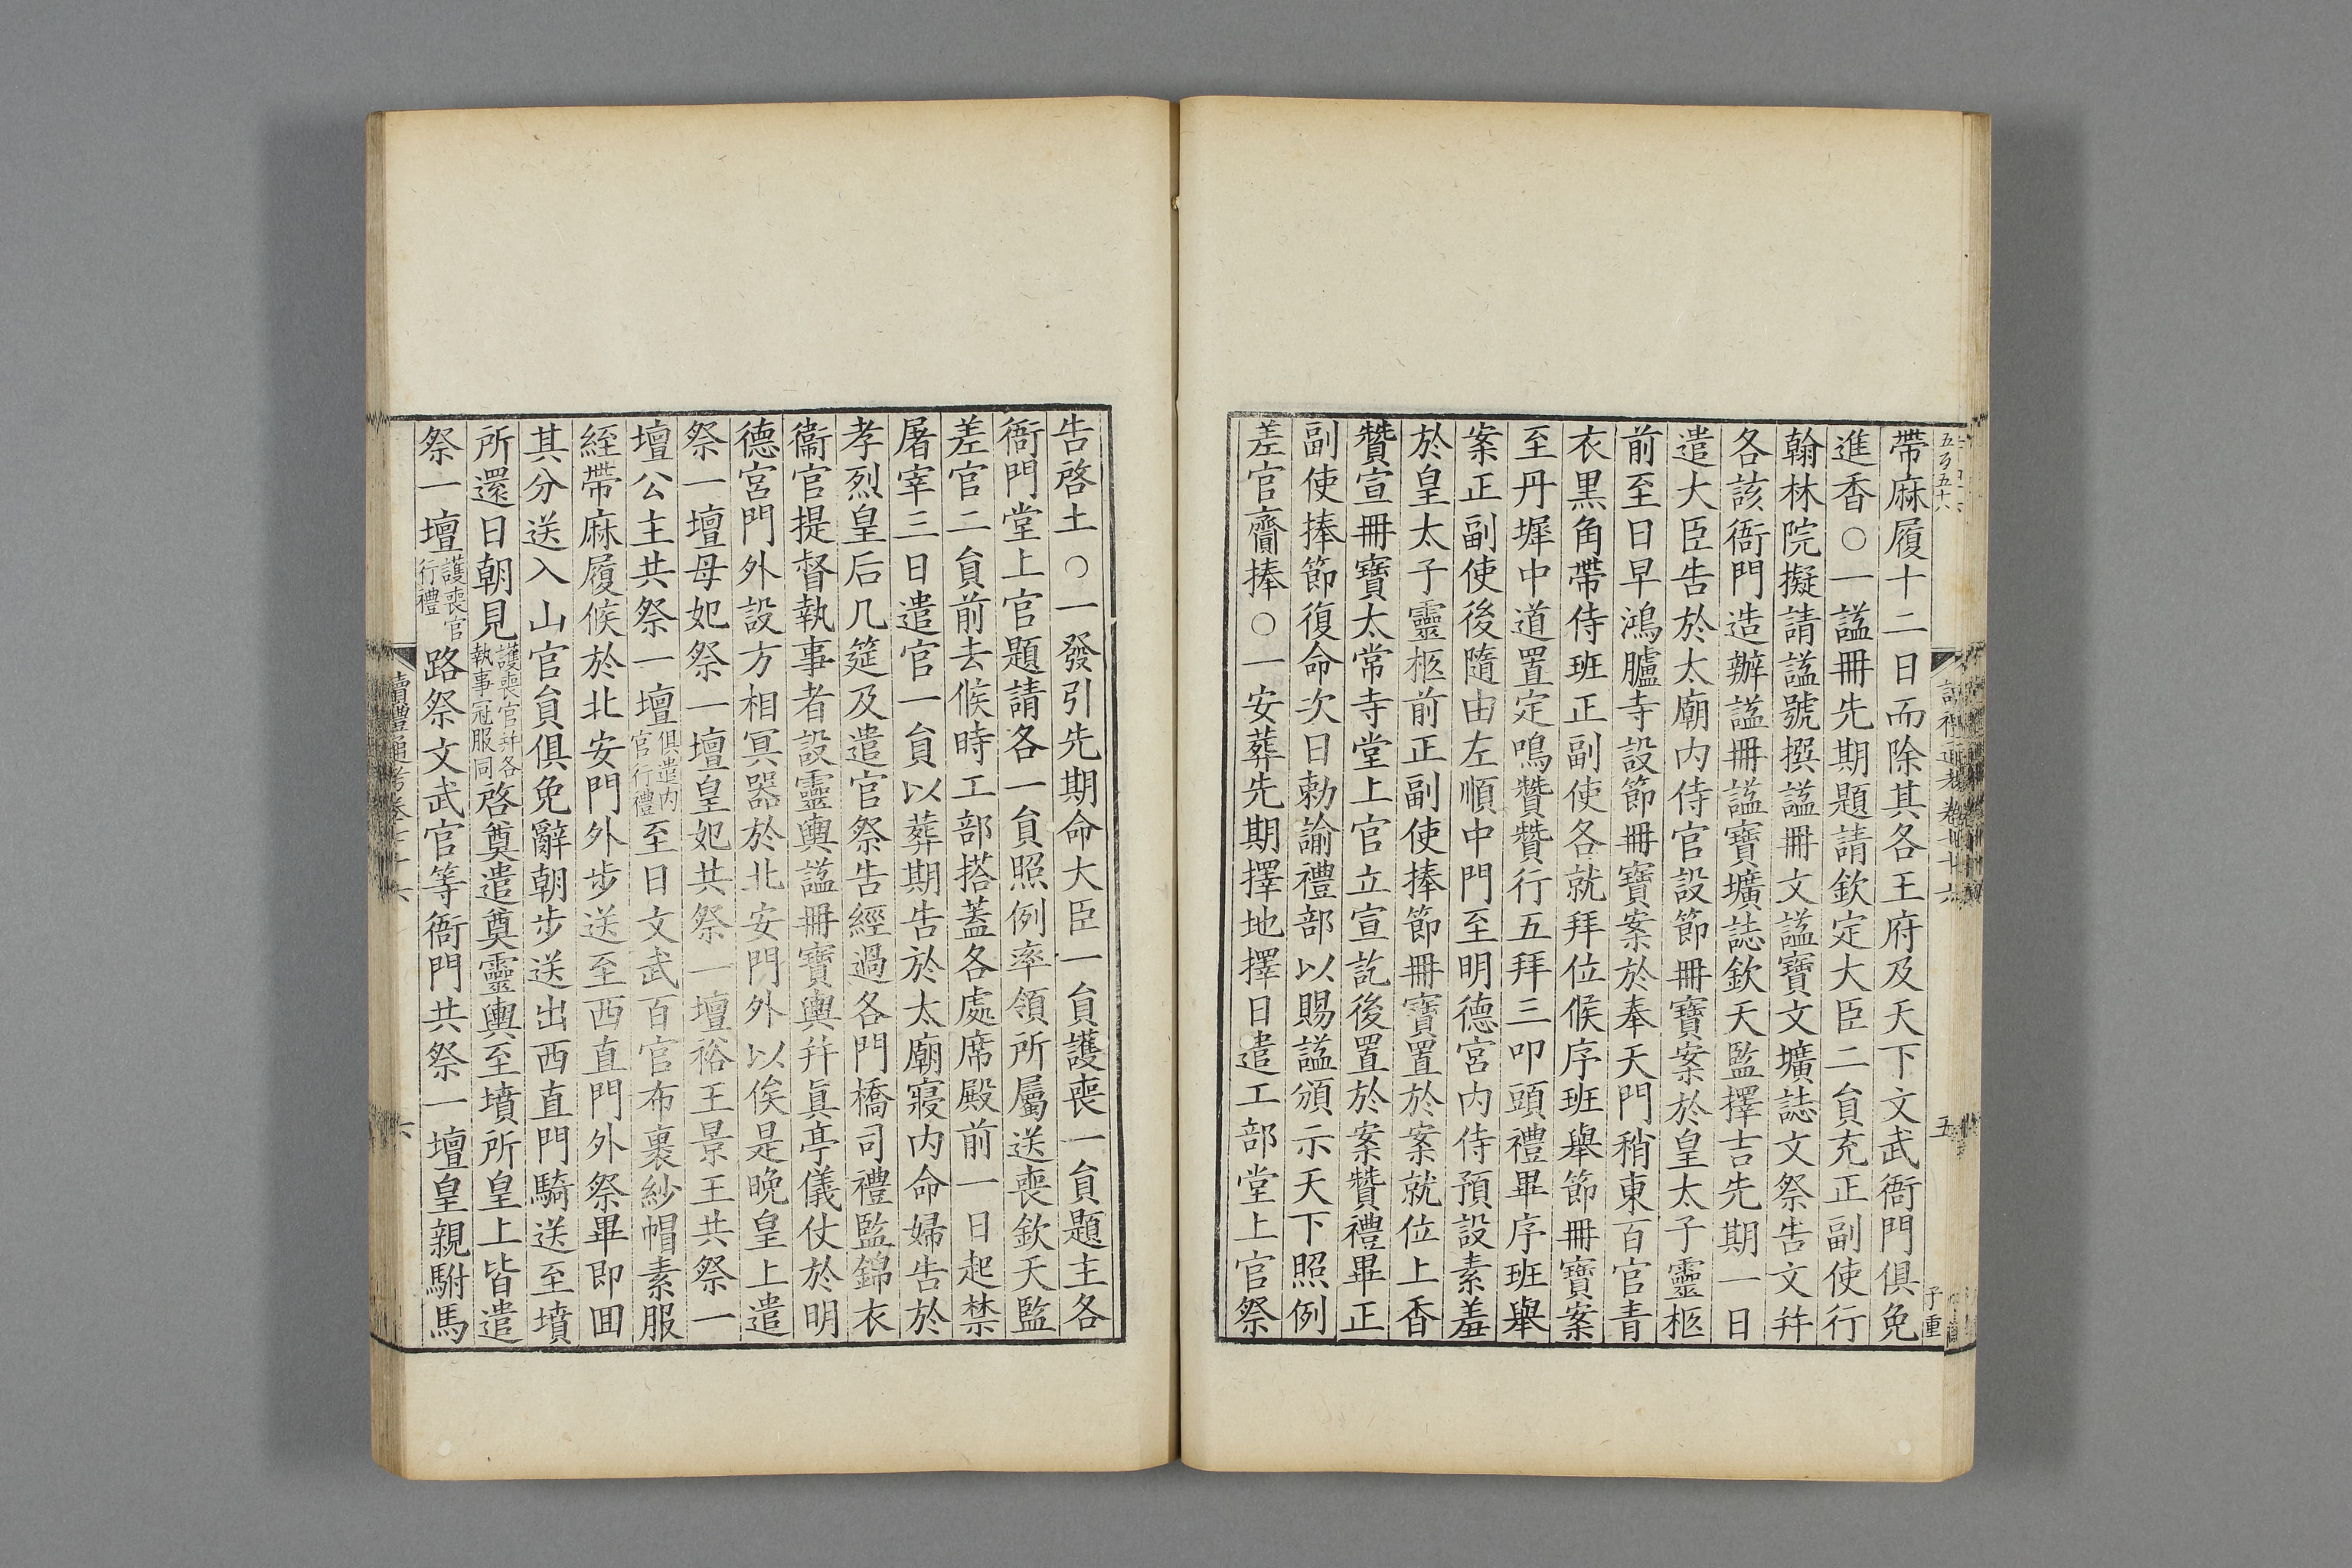 帶麻履十二日而除其各王府及天下文武衙門俱免
進香○一謚冊先期題請欽定大臣二員充正副使行
翰林院擬請謚號撰謚冊文謚寶文壙誌文祭告文幷
各該衙門造辦謚冊謚寶壙誌欽天監擇吉先期一日
遣大臣告於太廟內侍官設節冊寶案於皇太子靈柩
前至日早鴻臚寺設節冊寶案於奉天門稍東百官青
衣黑角帶侍班正副使各就拜位候序班舉節冊寶案
至丹墀中道置定鳴贊贊行五拜三叩頭禮畢序班舉
案正副使後隨由左順中門至明德宮內侍預設素羞
於皇太子靈柩前正副使捧節冊寶置於案就位上香
贊宣冊寶太常寺堂上官立宣訖後置於案贊禮畢正
副使捧節復命次日勅諭禮部以賜謚頒示天下照例
差官齎捧○一安葬先期擇地擇日遣工部堂上官祭
告啓土○一發引先期命大臣一員護喪一員題主各
衙門堂上官題請各一員照例率領所屬送喪欽天監
差官二員前去候時工部搭蓋各處席殿前一日起禁
屠宰三日遣官一員以葬期告於太廟寢內命婦告於
孝烈皇后几筵及遣官祭告經過各門橋司禮監錦衣
衞官提督執事者設靈輿謚冊寶輿幷眞亭儀仗於明
德宮門外設方相冥器於北安門外以俟是晩皇上遣
祭一壇母妃祭一壇皇妃共祭一壇裕王景王共祭一
壇公主共祭一壇俱遣內官行禮至日文武百官布裹紗帽素服
絰帶麻履候於北安門外步送至西直門外祭畢即囬
其分送入山官員俱免辭朝步送出西直門騎送至墳
所還日朝見護喪官幷各執事冠服同啓奠遣奠靈輿至墳所皇上皆遣
祭一壇護喪官行禮路祭文武官等衙門共祭一壇皇親駙馬
讀禮通考卷七十六
六